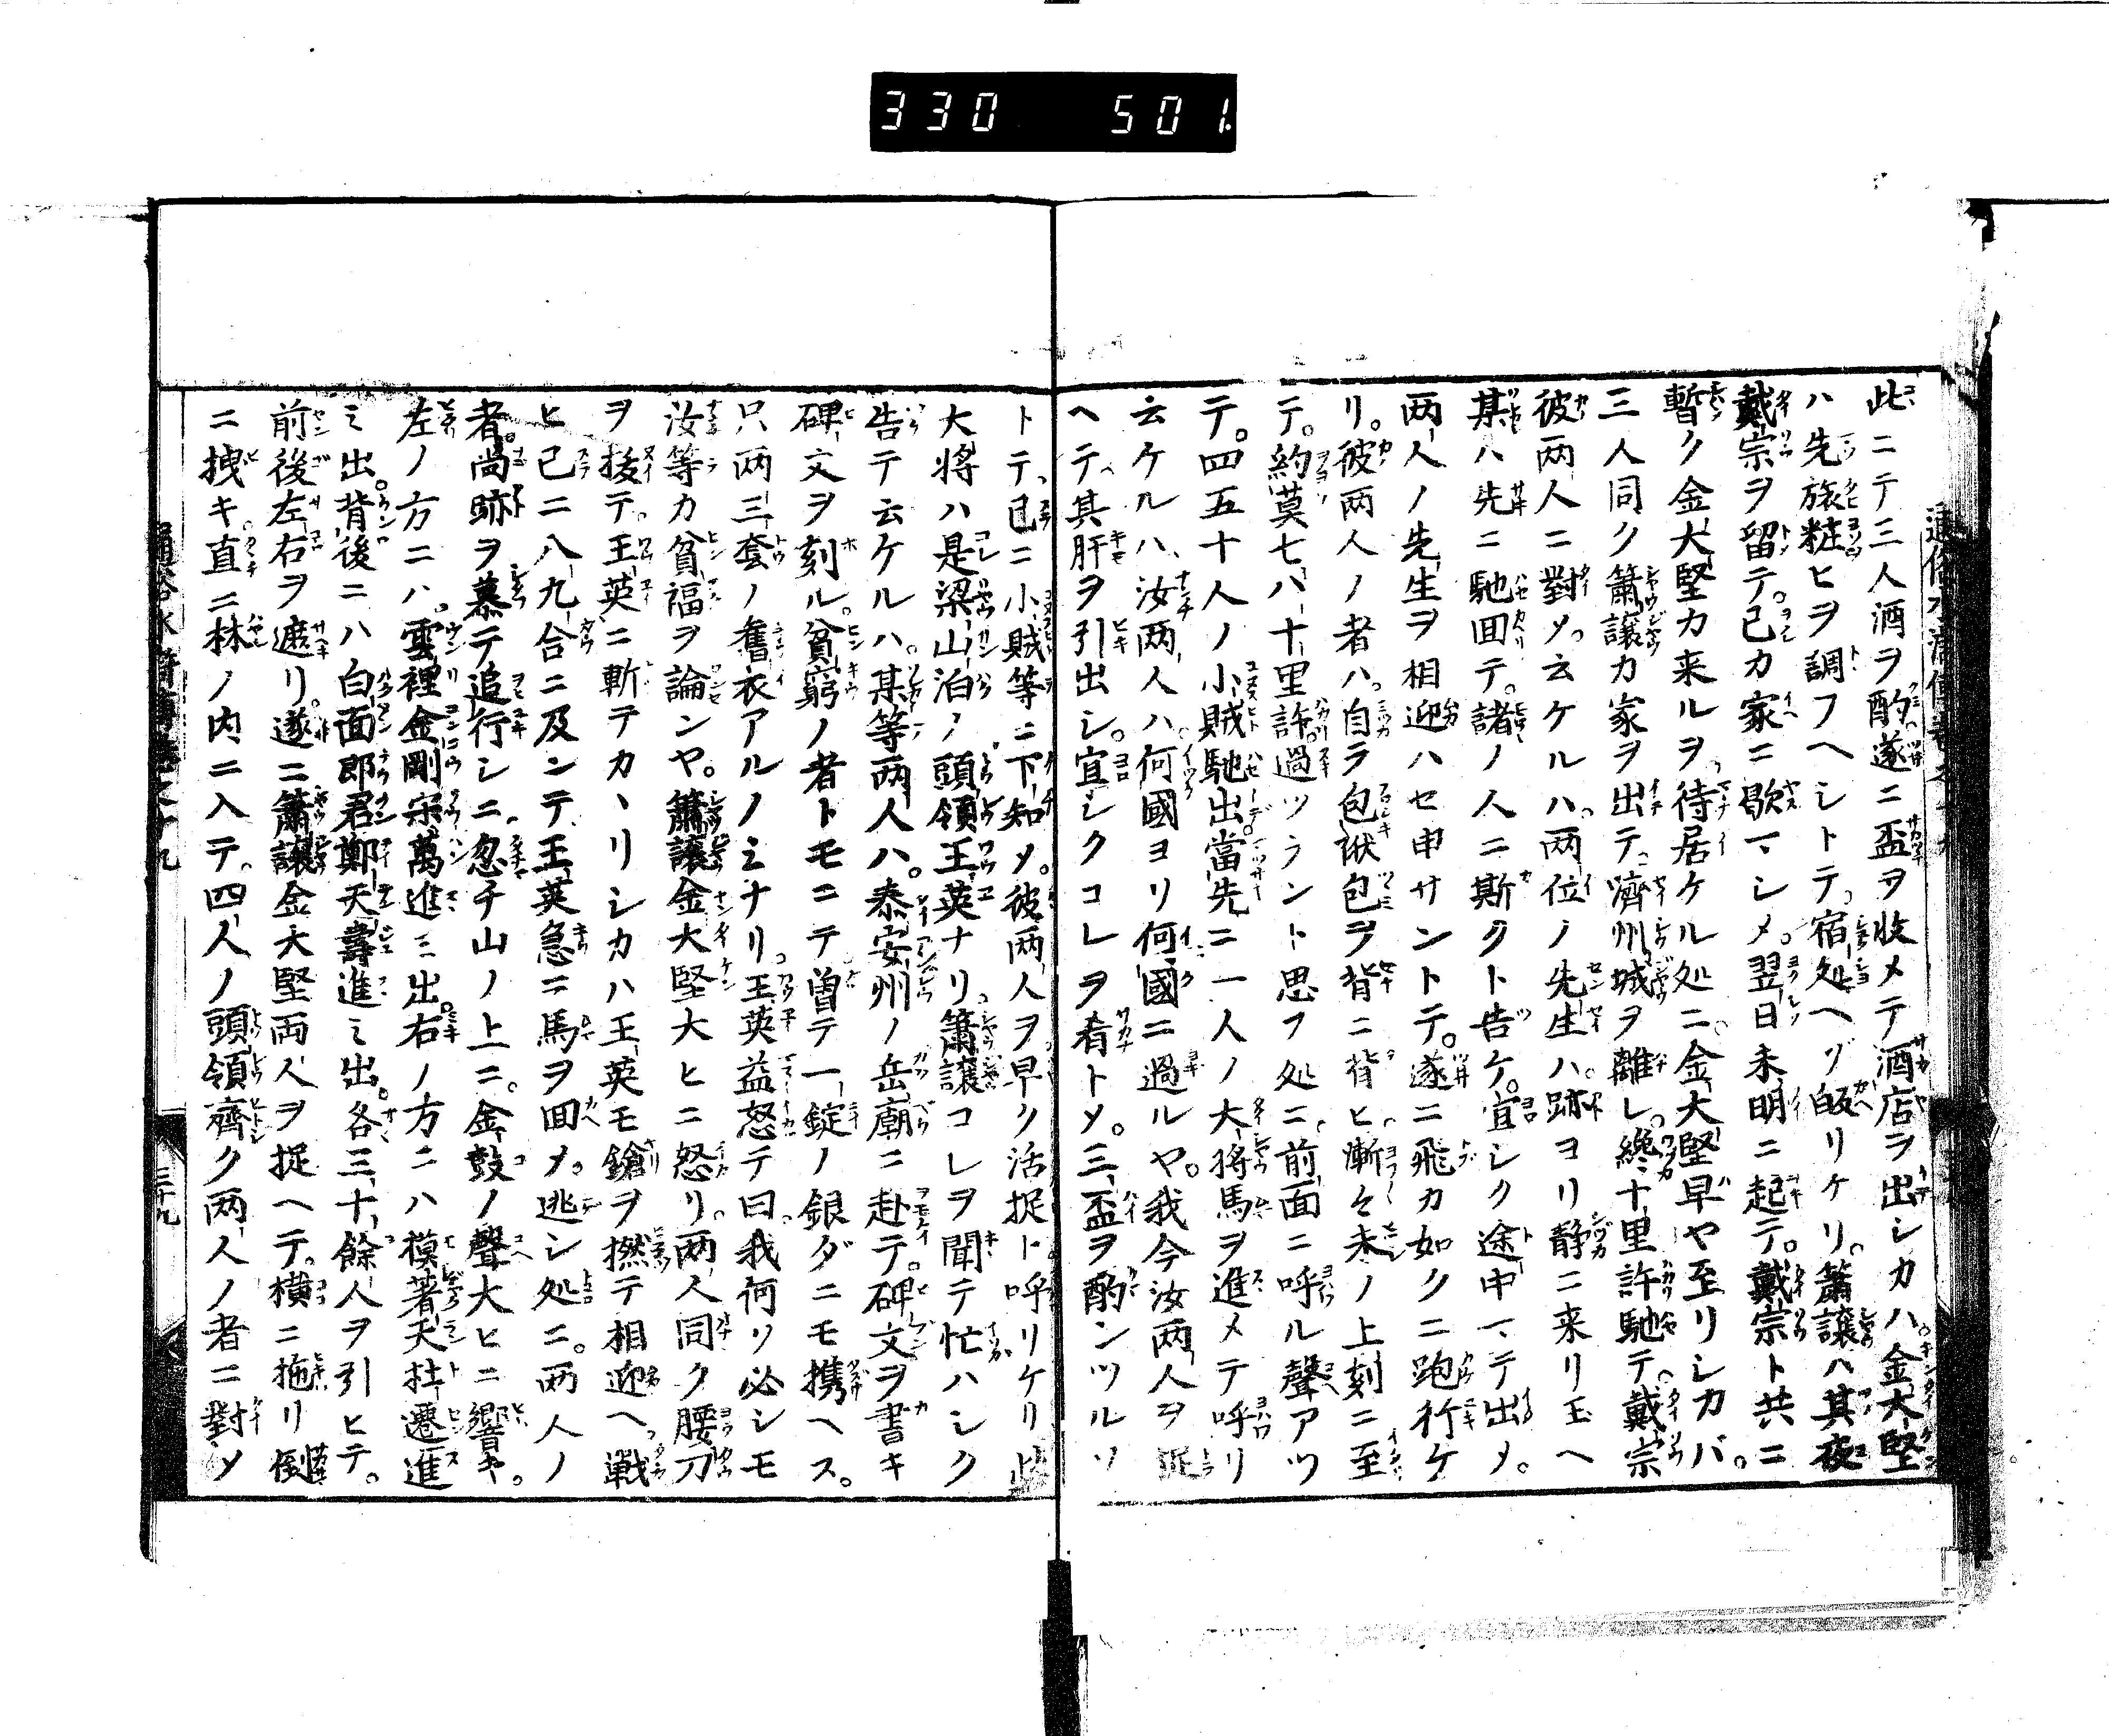 330 501.
此ニテ三人酒ヲ酌遂ニ盃ヲ收メテ酒店ヲ出シカハ。金大堅
ハ先旅粧ヒヲ調フヘシトテ宿処ヘゾ皈リケリ。簫讓ハ其夜
戴宗ヲ留テ。己カ家ニ歇マシメ。翌日未明ニ起テ。戴宗ト共ニ
暫ク金大堅カ来ルヲ待居ケル処ニ。金大堅早ヤ至リシカバ。
三人同ク簫讓カ家ヲ出テ濟州城ヲ離レ。纔十里許馳テ。戴宗
彼兩人ニ對メ云ケルハ。兩位ノ先生ハ。跡ヨリ静ニ来リ玉ヘ
某ハ先ニ馳回テ。諸ノ人ニ斯クト告ケ。宜シク途中マテ出メ。
兩人ノ先生ヲ相迎ハセ申サントテ。遂ニ飛カ如クニ跑行ケ
リ。彼兩人ノ者ハ。自ラ包袱包ヲ背ニ背ヒ漸々未ノ上刻ニ至
テ。約莫七八十里許過ツラント思フ処ニ。前面ニ呼ル聲アツ
テ。四五十人ノ小賊馳出當先ニ一人ノ大將馬ヲ進メテ呼リ
云ケルハ、汝兩人ハ何國ヨリ何國ニ過ルヤ。我今汝兩人ヲ
ヘテ其肝ヲ引出シ。宜シクコレヲ肴トメ。三盃ヲ酌ンツルソ
トテ已ニ小賊等ニ下知メ。彼兩人ヲ早ク活捉ト呼リケリ此
大將ハ是梁山泊ノ頭領王英ナリ簫讓コレヲ聞テ忙ハシク
告テ云ケルハ。某等兩人ハ。泰安州ノ岳廟ニ赴テ。碑文ヲ書キ
碑文ヲ刻ル。貧窮ノ者トモニテ曽テ一錠ノ銀ダニモ携ヘス。
只兩三套ノ舊衣アルノミナリ王英益怒テ曰。我何ソ必シモ
汝等カ貧福ヲ論ンヤ。簫讓金大堅大ヒニ怒リ。兩人同ク腰刀
ヲ拔テ。王英ニ斬テカヽリシカハ王英モ鎗ヲ撚テ相迎ヘ戰
ヒ已ニ八九合ニ及ンテ王英急ニ馬ヲ回メ。逃シ処ニ。兩人ノ
者。尚跡ヲ慕テ追行シニ忽チ山ノ上ニ。金鼓ノ聲大ヒニ響キ。
左ノ方ニハ。雲裡金剛宋萬進ミ出。右ノ方ニハ摸著天杜遷進
ミ出。背後ニハ白面郎君鄭天壽進ミ出。各三十餘人ヲ引ヒテ。
前後左右ヲ遮リ。遂ニ簫讓金大堅両人ヲ捉ヘテ。横ニ拖リ倒
ニ拽キ直ニ林ノ内ニ入テ。四人ノ頭領齊ク兩人ノ者ニ對メ